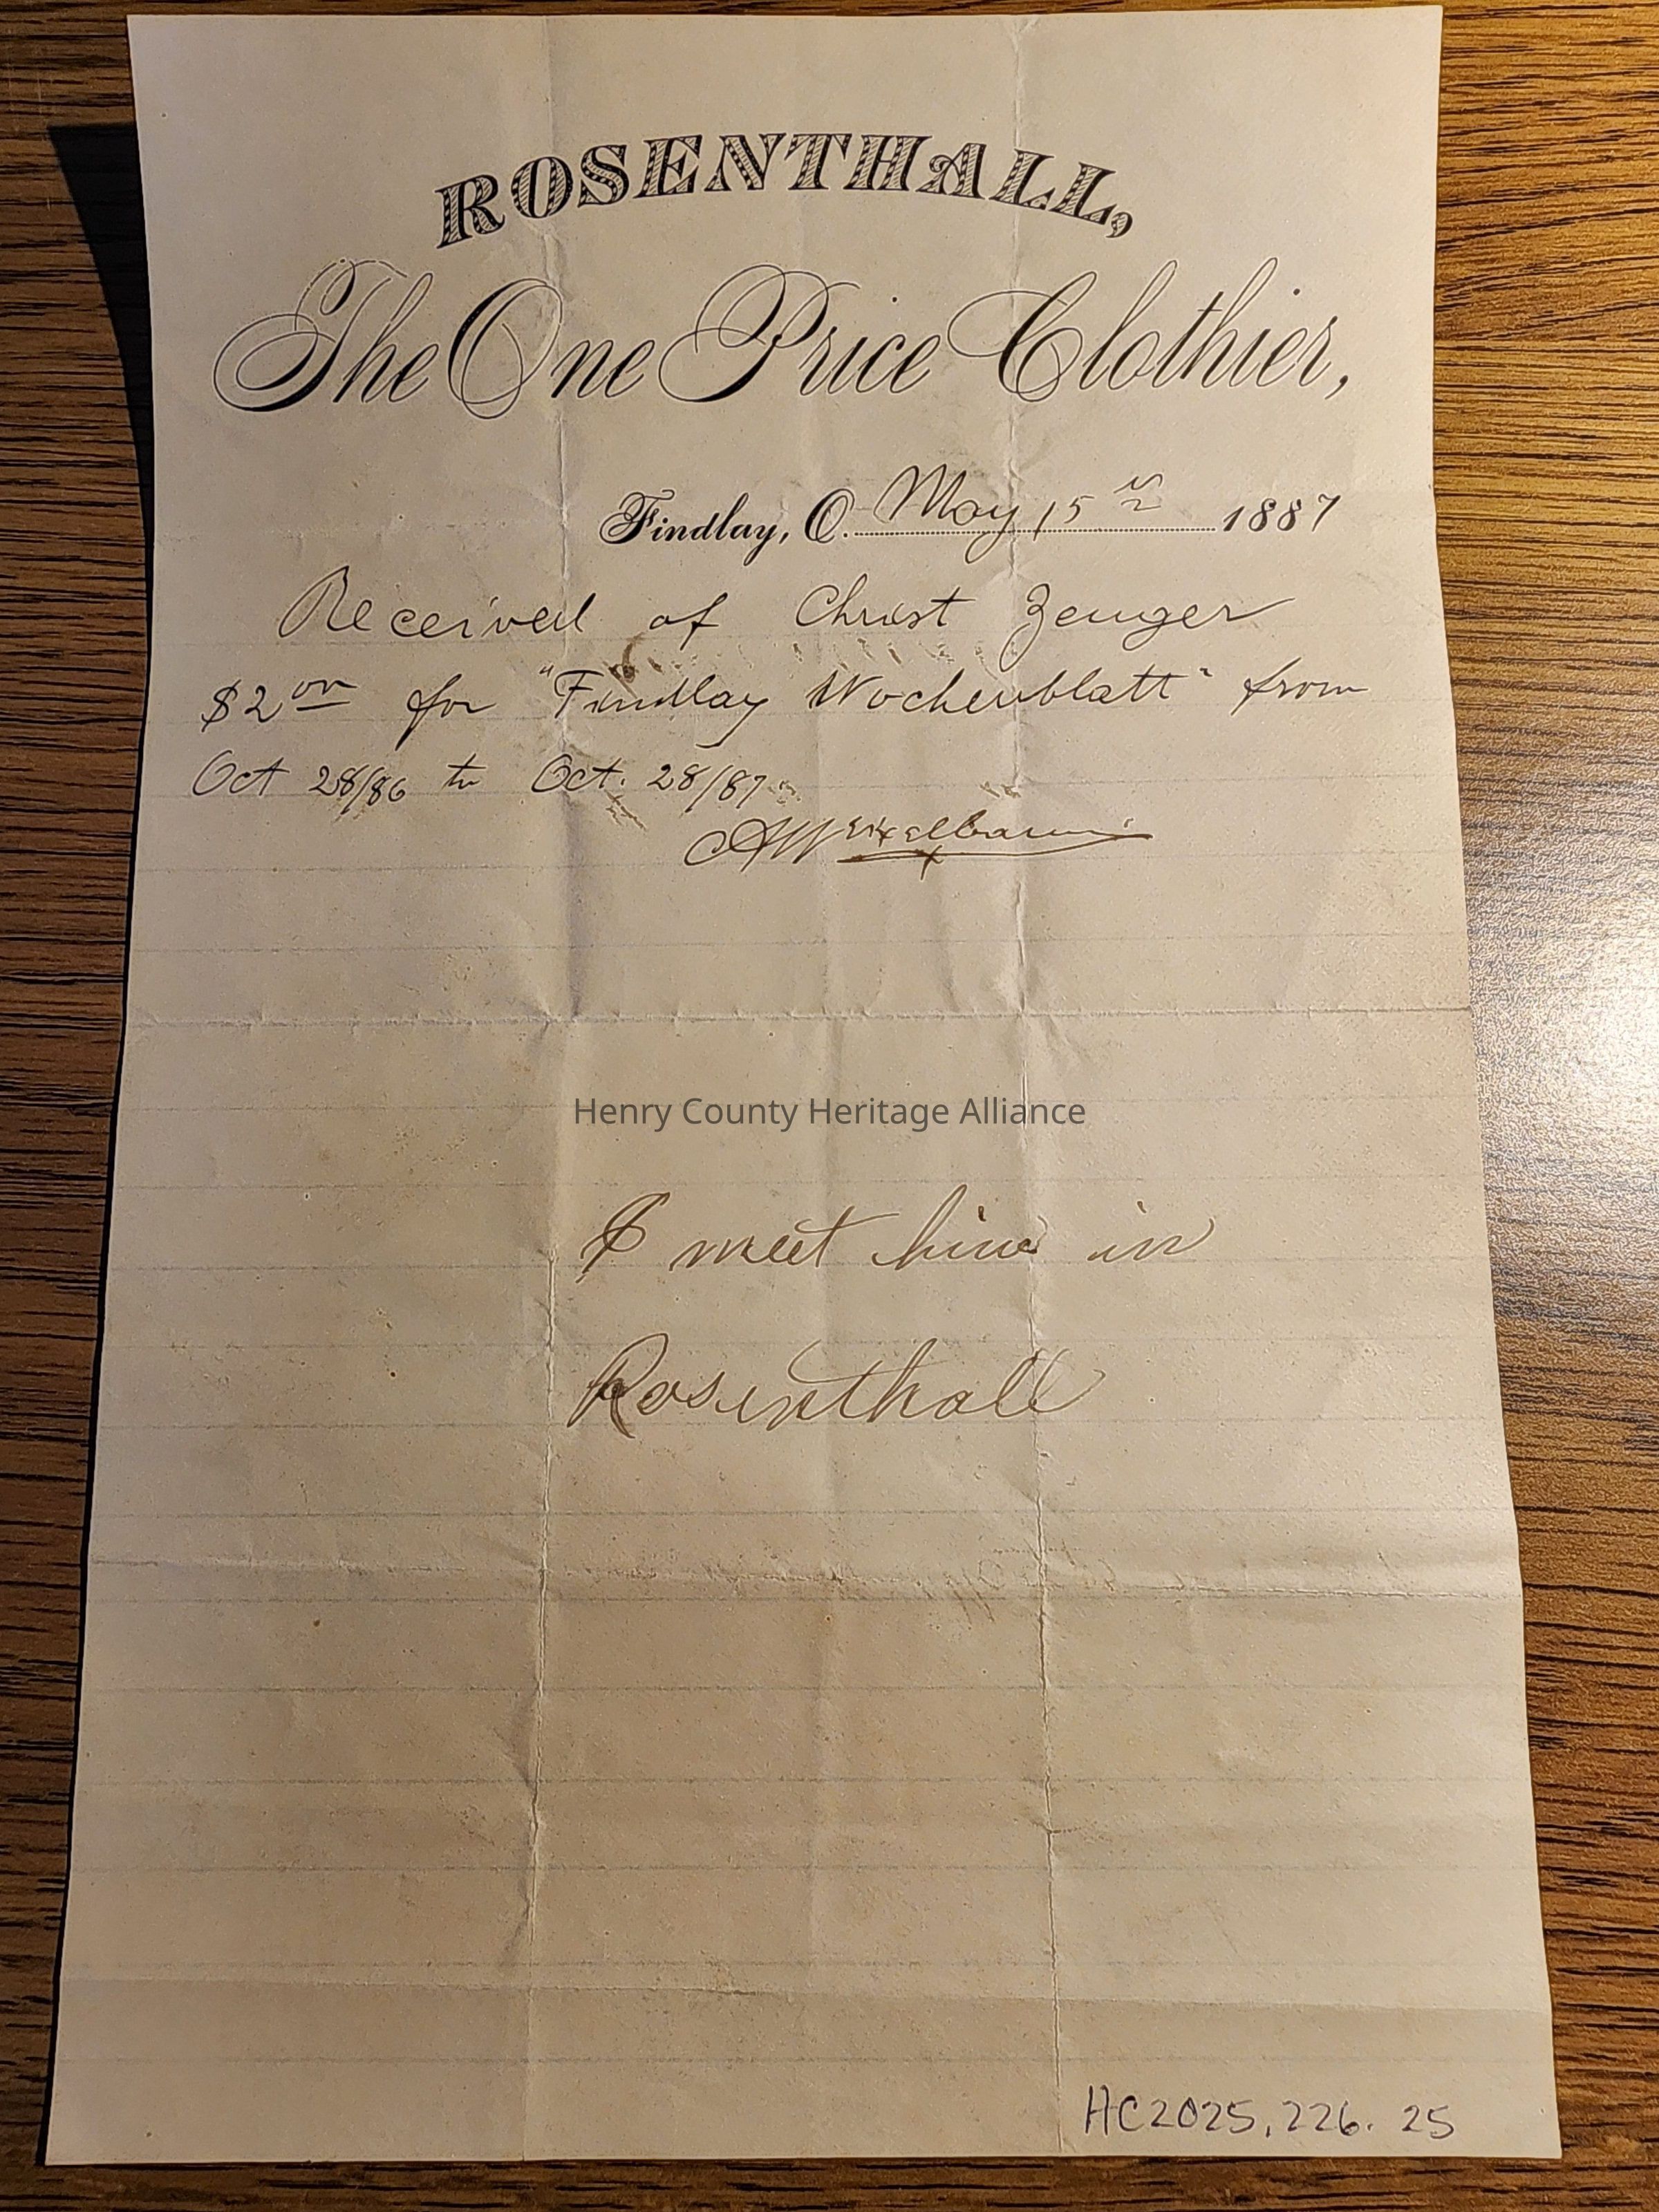 ROSENTHALL,
The One Price Clothier,
Findlay, O. May 15th 1887
Received of Christ Zeuger
$2 00 for "Findlay Wochenblatt" from
Oct 28/86 to Oct. 28/87
Henry County Heritage Alliance
I meet him in
Rosenthall
HC2025.226.25